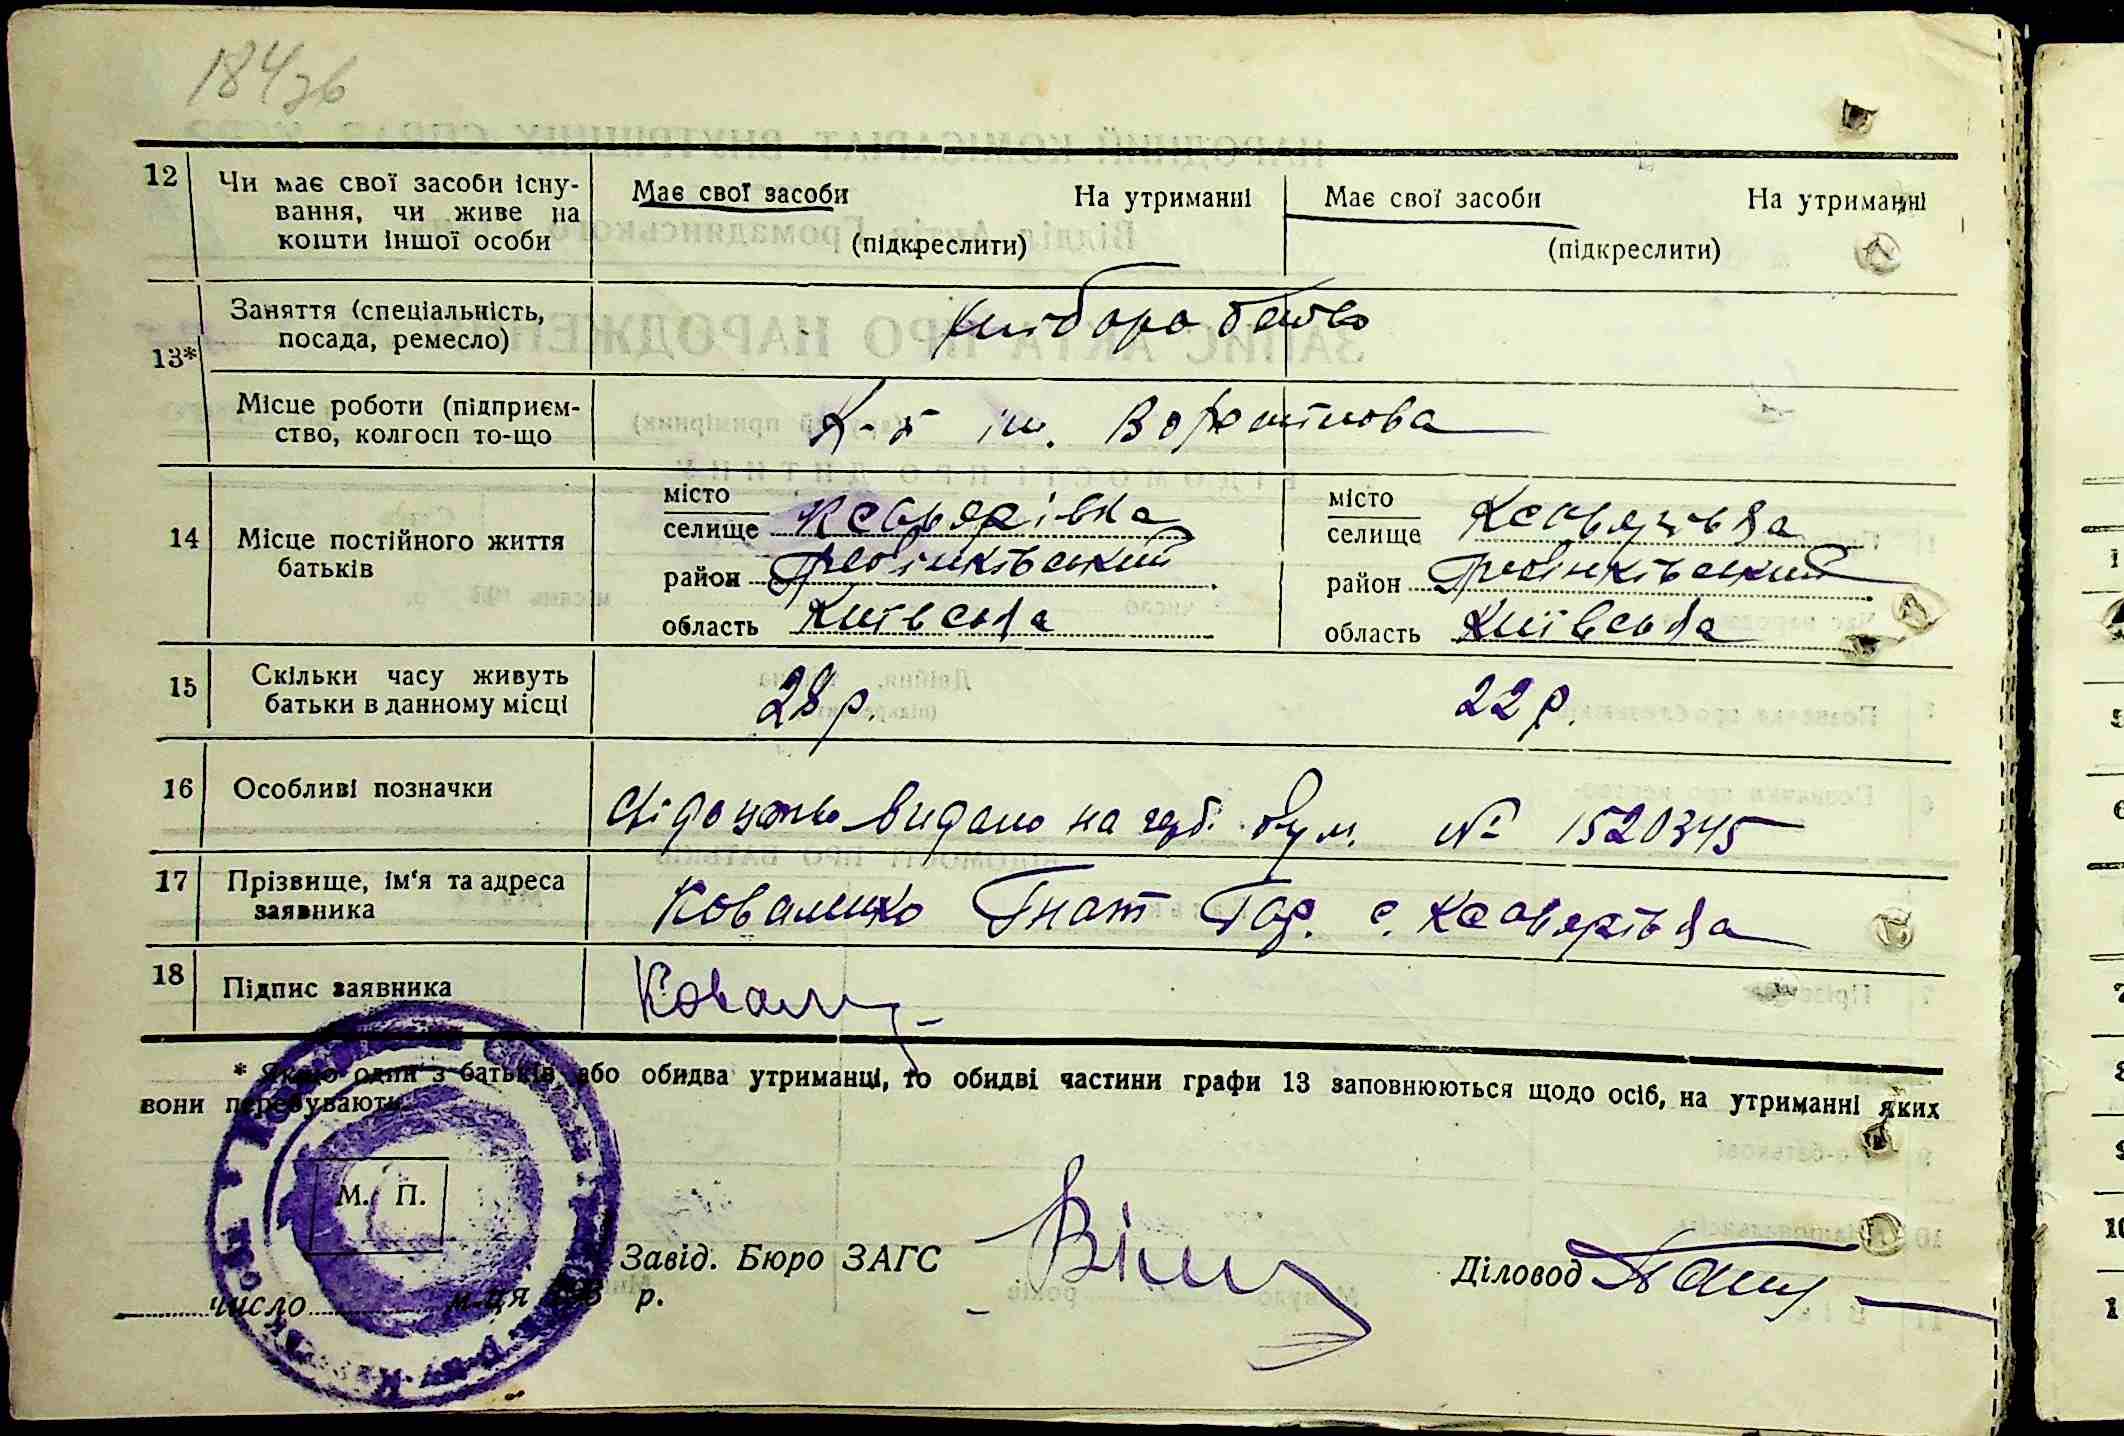 184 зв
12 Чи має свої засоби існу- Має свої засоби На утриманні Має свої засоби На утриманні
вання, чи живе на
кошти іншої особи (підкреслити) (підкреслити)
13* Заняття (спеціальність, хлібороботво
посада, ремесло)
Місце роботи (підприєм- К-п ім. Ворошилова
ство, колгосп то-що
14 Місце постійного життя
батьків
місто
селище Ксаверівка
район Гребінківський
область Київська
місто
селище Ксаверівка
район Гребінківський
область Київська
15 Скільки часу живуть 28 р. 22 р.
батьки в данному місці
16 Особливі позначки Свідоцтво видано на герб. бум. № 1520345
17 Прізвище, ім'я та адреса Коваленко Гнат с. Ксаверівка
заявника
18 Підпис заявника
* Якщо один з батьків або обидва утриманці, то обидві частини графи 13 заповнюються щодо осіб, на утриманні яких
вони перебувають.
М. П.
Завід. Бюро ЗАГС Діловод
число м-ця 193 р.